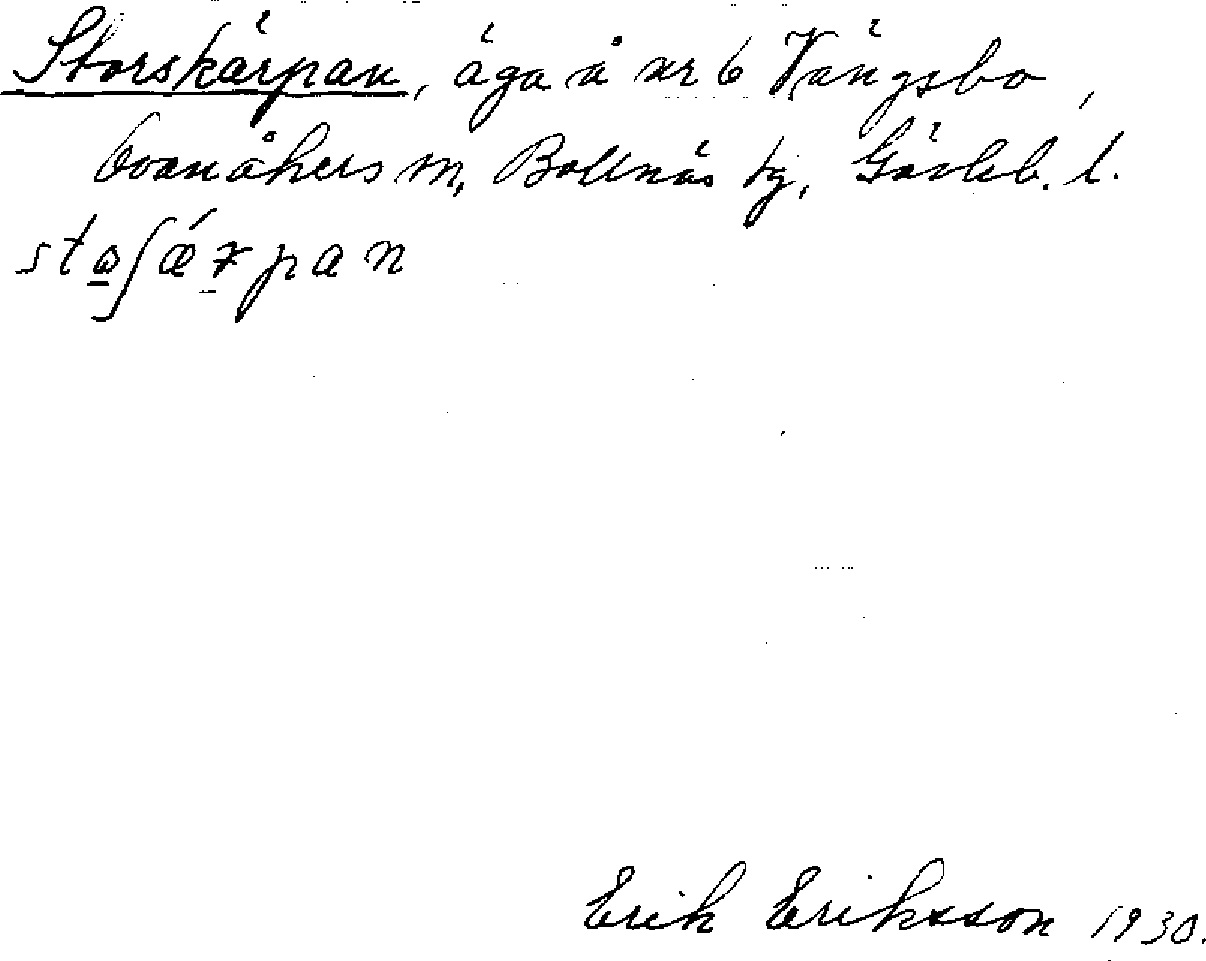 Storskärpan, äga å nr 6 Vängsbo,
Ovanåkers sn, Bollnäs tg, Gävleb. l.
sto̲ʃæ̀rpan
Erik Eriksson 1930.